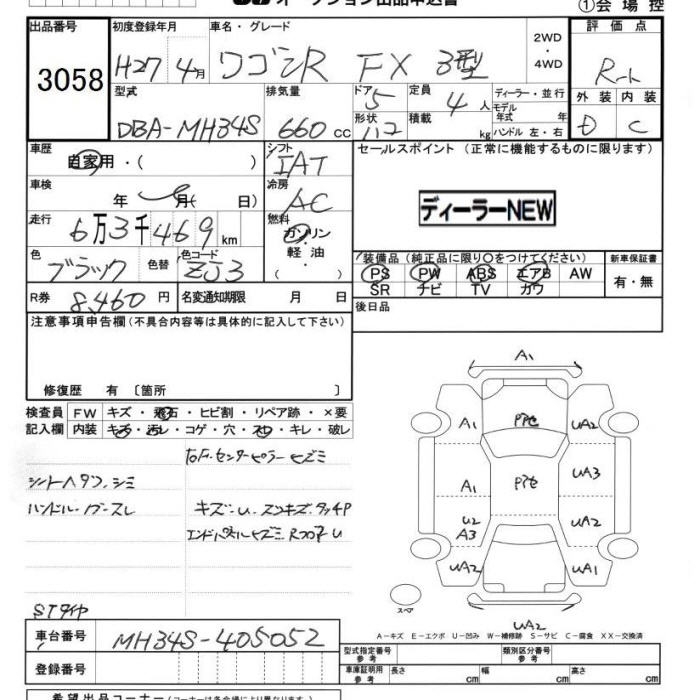 オークション出品申込書
①会場控
出品番号 初度登録年月 車名・グレード 2WD ・ 4WD 評価点
3058 H27年 4月 ワゴンR FX 3型 R-ト
型式 排気量 ドア 5 定員 4人 ディーラー・並行 外装 内装
DBA-MH34S 660cc 形状 積載 kg モデル年式 年 ハンドル 左・右 D C
車歴 自家用・( ) シフト IAT セールスポイント (正常に機能するものに限ります)
車検 年 月( 日) 冷房 AC
ディーラーNEW
走行 6万3千469km 燃料 ガソリン・軽油・
色 ブラック 色替 色コード ZJ3
装備品 (純正品に限り○をつけてください) 新車保証書
PS PW ABS エアB AW 有・無
SR ナビ TV カワ
R券 8,460円 名変通知期限 月 日 後日品
注意事項申告欄 (不具合内容等は具体的に記入して下さい)
修復歴 有 〔箇所 〕
検査員 FW キズ・飛石・ヒビ割・リペア跡・×要
記入欄 内装 キズ・汚レ・コゲ・穴・スレ・キレ・破レ
シートヘタリ、シミ
ハンドル・
キズ・U
エンドパネル
STタイヤ
A1
A1 UA2
A1 UA3
U2 A3 UA2
UA2 UA1
UA2
スペア
A-キズ E-エクボ U-凹み W-補修跡 S-サビ C-腐食 XX-交換済
車台番号 MH34S-405052
登録番号
型式指定番号 参考 類別区分番号 参考
車庫証明用 参考 長さ cm 幅 cm 高さ cm
希望出品コーナー (コーナーは各会場により異なります)